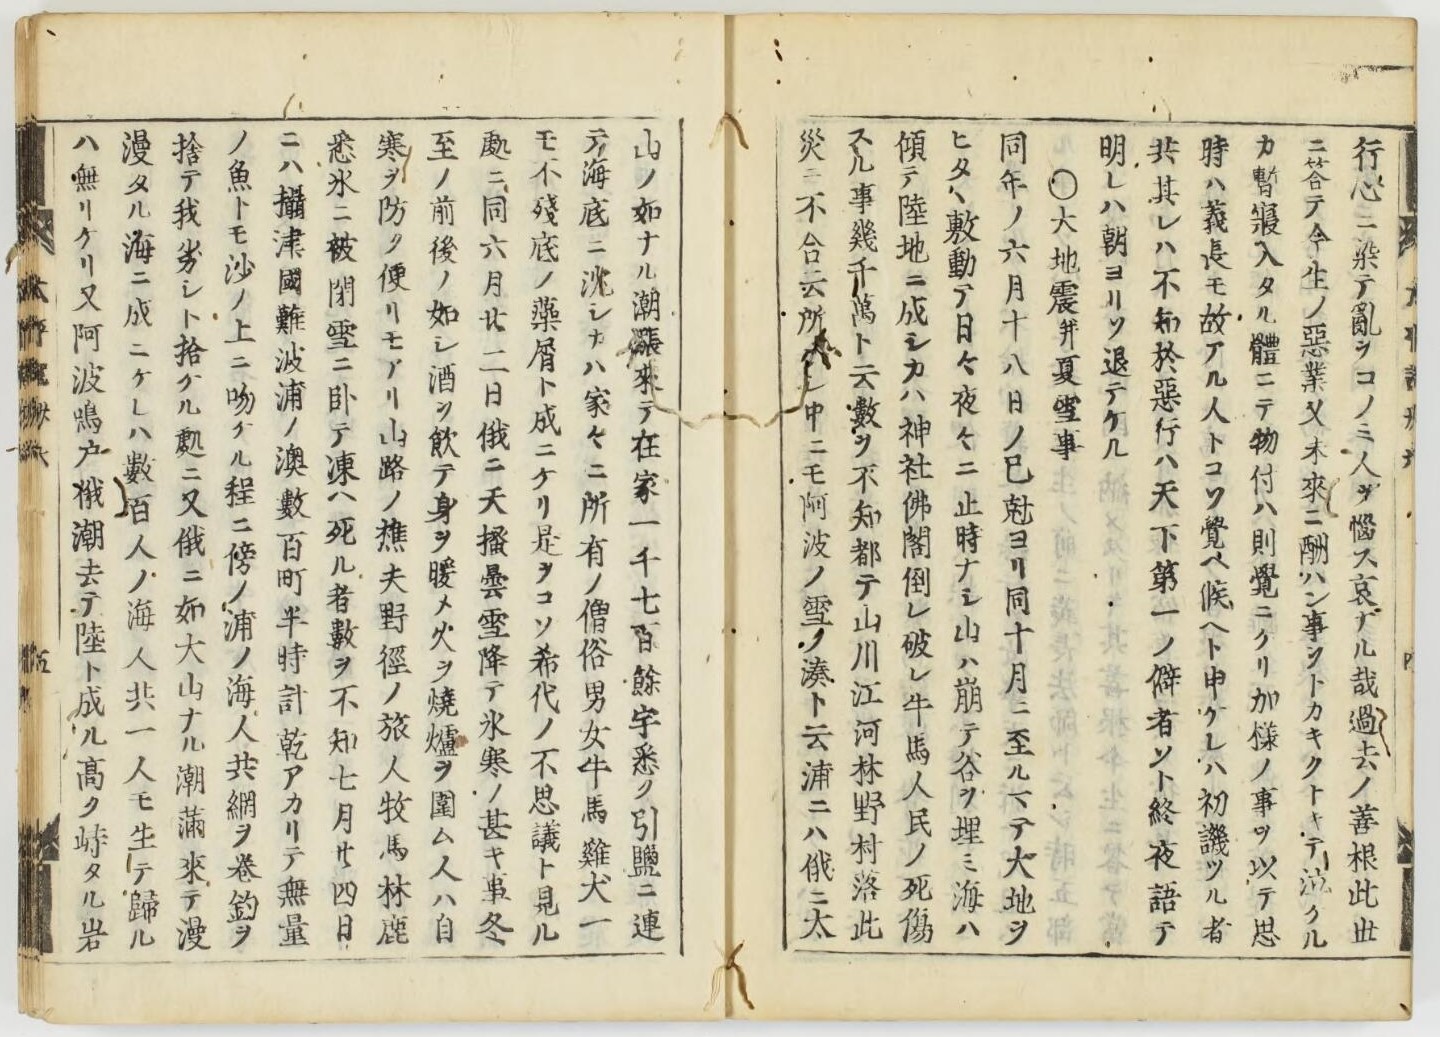 行心ニ染テ亂シコノミ人ヲ惱ス哀ナル哉過去ノ善根此世
ニ荅テ今生ノ惡業又未來ニ酬ハン事ントカキクトキテ泣クル
カ暫寢入タル體ニテ物付ハ則覺ニクリ加様ノ事ヲ以テ思
時ハ義長モ故アル人トコソ覺ヘ候ヘト申ケレハ初譏ツル者
共其レハ不知於惡行ハ天下第一ノ僻者ソト終夜語テ
明レハ朝ヨリソ退テケル
○大地震并夏雪事
同年ノ六月十八日ノ巳尅ヨリ同十月ニ至ルマテ大地ヲ
ヒタヽ敷動テ日々夜々ニ止時ナシ山ハ崩テ谷ヲ埋ミ海ハ
傾テ陸地ニ成シカハ神社佛閣倒レ破レ牛馬人民ノ死傷
スル事幾千萬ト云數ヲ不知都テ山川江河林野村落此
災ニ不合云所ハシ中ニモ阿波ノ雪ノ湊ト云浦ニハ俄ニ太
山ノ如ナル潮漲來テ在家一千七百餘宇悉ク引鹽ニ連
テ海底ニ沈シカハ家々ニ所有ノ僧俗男女牛馬雞犬一
モ不殘底ノ藻屑ト成ニケリ是ヲコソ希代ノ不思議ト見ル
處ニ同六月廿二日俄ニ天搔曇雪降テ氷寒ノ甚キ事冬
至ノ前後ノ如シ酒ヲ飲テ身ヲ暖メ火ヲ燒爐ヲ圍ム人ハ自
寒ヲ防ク便リモアリ山路ノ樵夫野徑ノ旅人牧馬林鹿
悉氷ニ被閉雪ニ臥テ凍ヘ死ル者數ヲ不知七月廿四日
ニハ攝津國難波浦ノ澳數百町半時計乾アカリテ無量
ノ魚トモ沙ノ上ニ吻クル程ニ傍ノ浦ノ海人共網ヲ卷釣ヲ
捨テ我劣シト拾ケル處ニ又俄ニ如大山ナル潮滿來テ漫
漫タル海ニ成ニケレハ數百人ノ海人共一人モ生テ歸ル
ハ無リケリ又阿波鳴戸俄潮去テ陸ト成ル高ク峙タル岩